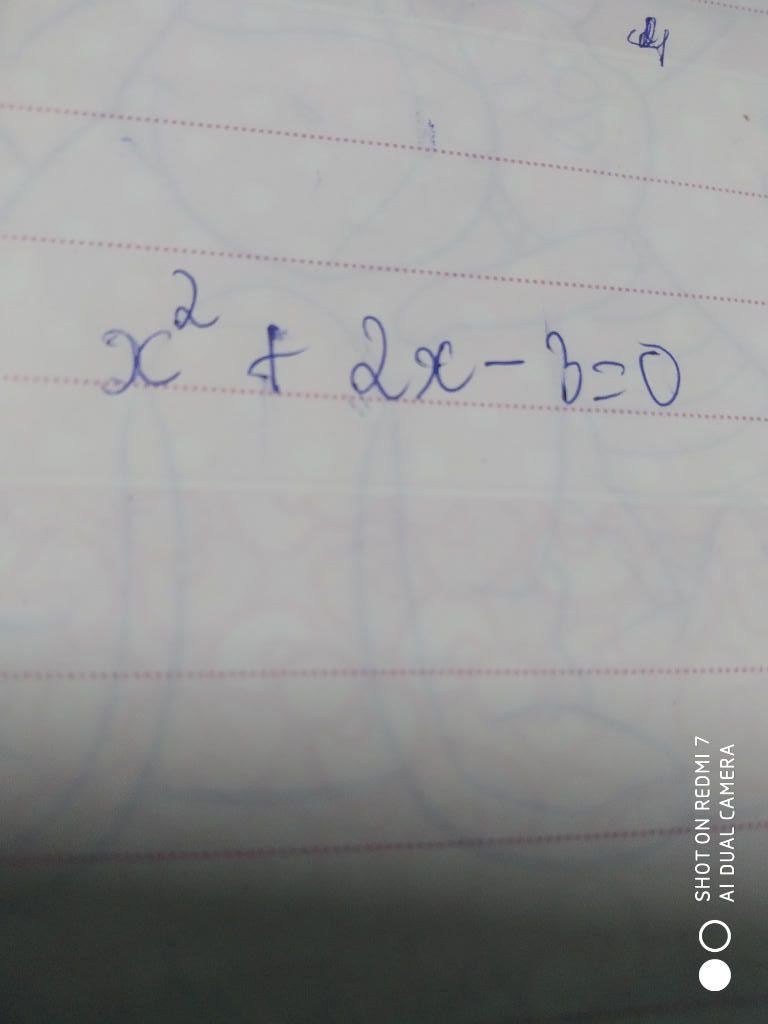 x² + 2x - 3 = 0
SHOT ON REDMI 7
AI DUAL CAMERA